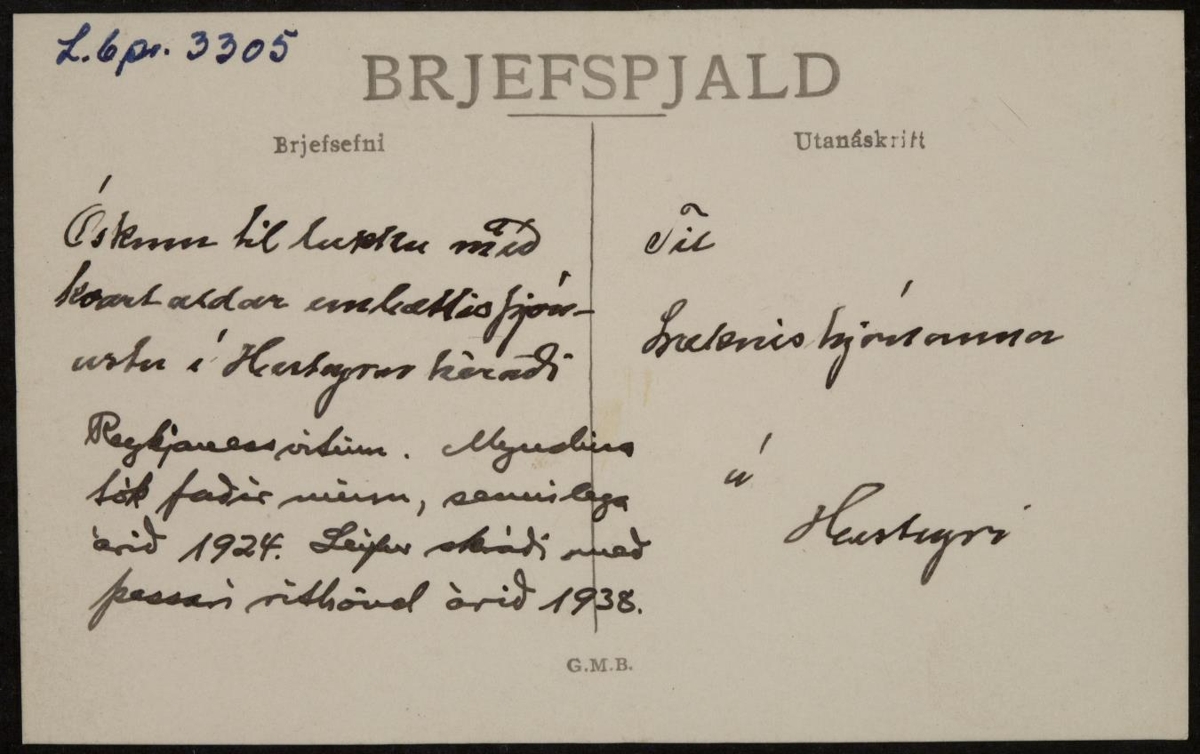 L. 6 pr. 3305
BRJEFSPJALD
Brjefsefni
Utanáskrift
Óskum til lukku með
kvart aldar embættisþjón-
ustu í Hesteyrar héraði
Reykjanessvitinn. Myndina
tók faðir minn, sennilega
árið 1924. Leifur skráði með
þessari rithönd árið 1938.
Til
Læknishjónanna
á
Hesteyri
G.M.B.